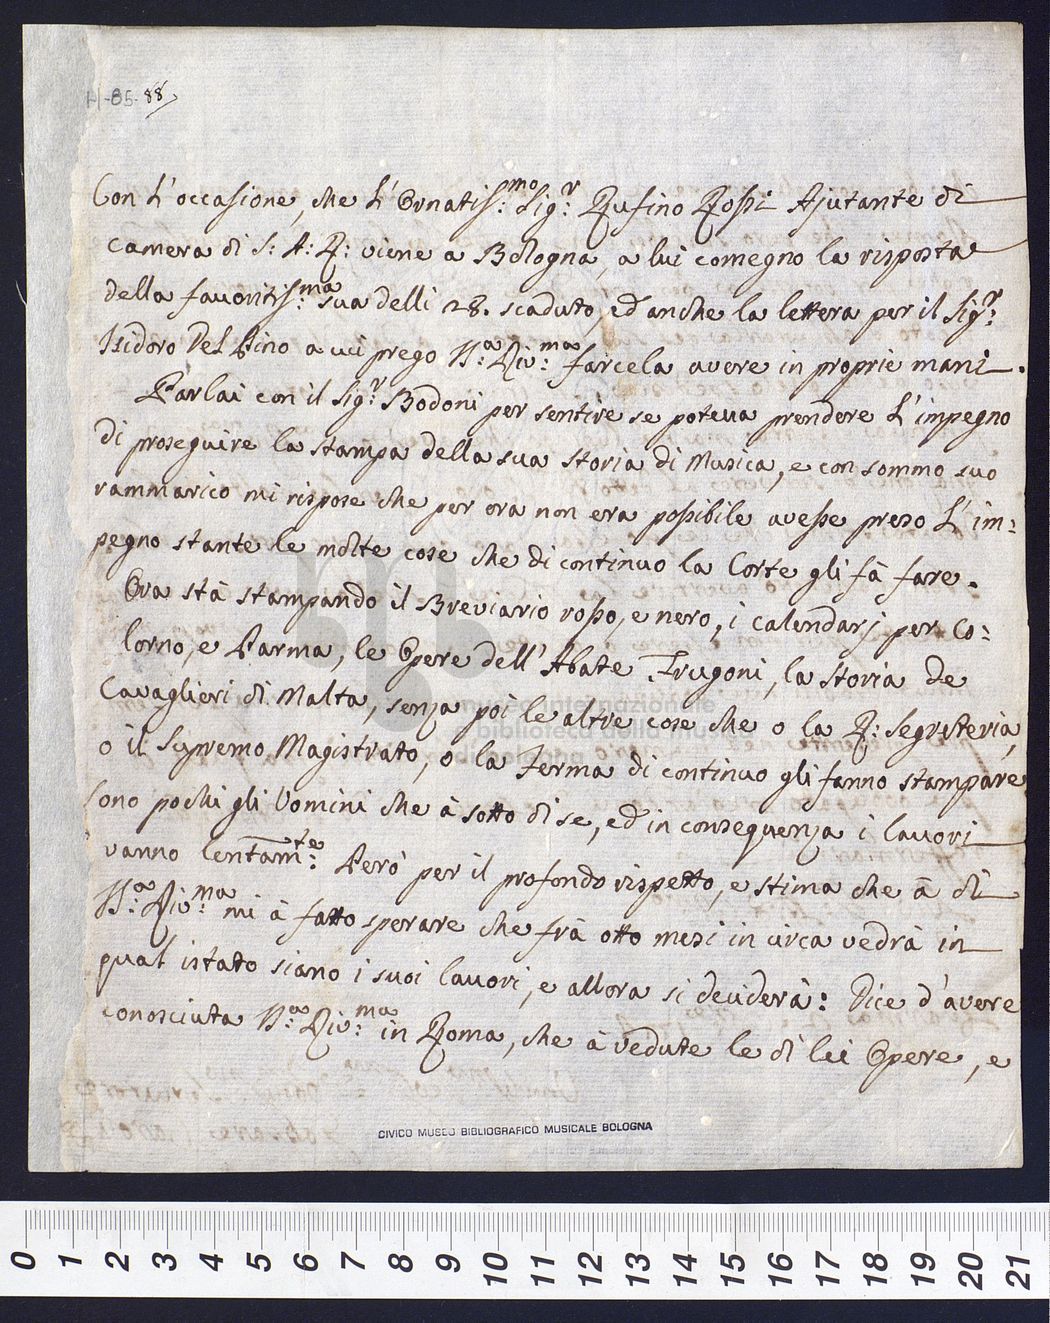 H-85-88
Con L'occasione, che L'Ornatiss:mo Sig:r Rufino Rossi Ajutante di
camera di S: A: R: viene a Bologna, a lui comegno la risposta
della favoritiss:ma sua delli 28. scaduto, ed anche la lettera per il Sig:r
Isidoro Del Pino a cui prego V:a Riv:ma farcela avere in proprie mani.
Parlai con il Sig:r Bodoni per sentire se poteva prendere L'impegno
di proseguire la stampa della sua storia di Musica, e con sommo suo
rammarico mi rispose che per ora non era possibile avesse preso L'im=
pegno stante le molte cose che di continuo la Corte gli fà fare.
Ora stà stampando il Breviario rosso, e nero, i calendarj per Co=
lorno, e Parma, le Opere dell'Abate Frugoni, la storia de
Cavaglieri di Malta, senza poi le altre cose che o la R: Segreteria,
o il Supremo Magistrato, o la Ferma di continuo gli fanno stampare
sono pochi gli Uomini che à sotto di se, ed in conseguenza i lavori
vanno lentam:te Però per il profondo rispetto, e stima che à di
V:a Riv:ma mi à fatto sperare che frà otto mesi in circa vedrà in
qual istato siano i suoi lavori, e allora si deciderà: Dice d'avere
conosciuta V:a Riv:ma in Roma, che à vedute le di lei Opere, e
CIVICO MUSEO BIBLIOGRAFICO MUSICALE BOLOGNA
museo internazionale
e biblioteca della musica
di bologna
0 1 2 3 4 5 6 7 8 9 10 11 12 13 14 15 16 17 18 19 20 21